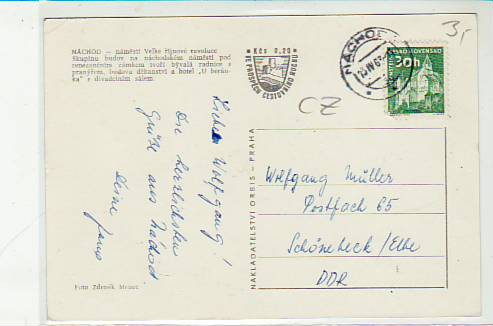 NÁCHOD — náměstí Velké říjnové revoluce
Skupinu budov na náchodském náměstí pod
renesančním zámkem tvoří bývalá radnice s
pranýřem, budova děkanství a hotel „U berán-
ka“ s divadelním sálem.
Kčs 0,20
VE PROSPĚCH ČESKOSLOVENSKÉHO
NÁCHOD
ČESKOSLOVENSKO
30h
3,
CZ
Lieber Wolfgang!
Die herzlichsten
Grüße aus Náchod.
Deine Jana
NAKLADATELSTVÍ ORBIS - PRAHA
Wolfgang Müller
Postfach 65
Schönebeck/Elbe
DDR
Foto Zdeněk